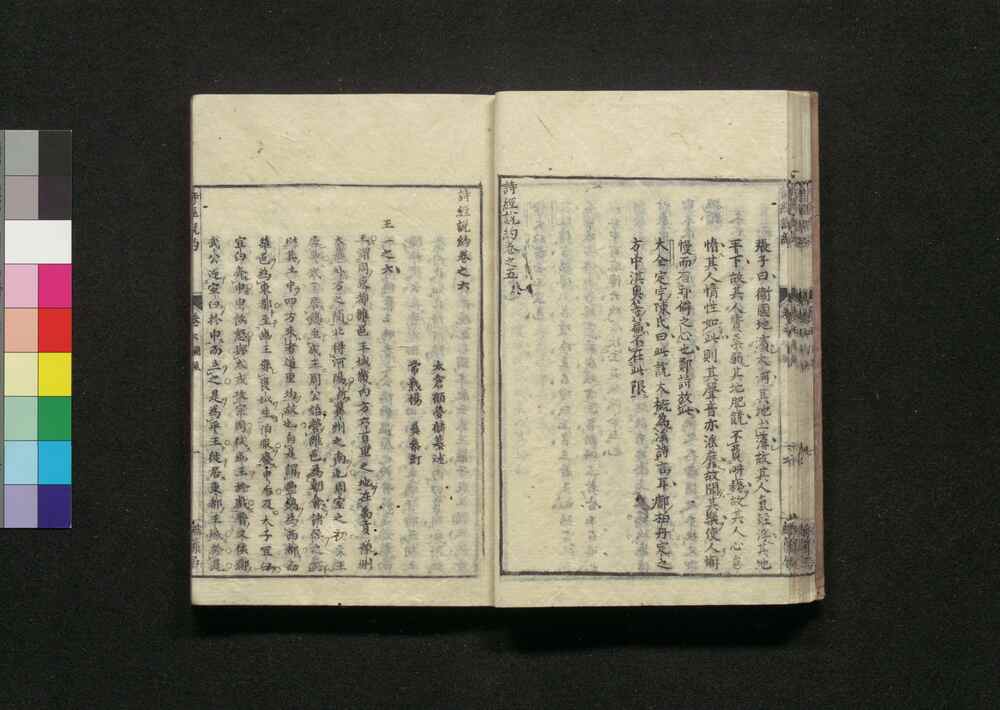 張子曰衞國地濱大河其地土薄故其人氣輕浮其地
平下故其人質柔弱其地肥饒不費耕耨故其人心怠
惰其人情性如此則其聲音亦淫靡故聞其樂使人懈
慢而有邪僻之心也鄭詩放此
大全定字陳氏曰此說大槩為淫詩言耳鄘柏舟定之
方中淇奧等篇不在此限
詩經說約卷之五終
詩經說約卷之六
太倉顧夢麟纂述
常熟楊彝參訂
王一之六
王謂周東都雒邑王城畿內方六百里之地在禹貢豫州
太華外方之間北得河陽漸冀州之南也周室之初文王
居豐武王居鎬至成王周公始營雒邑為朝會諸侯之所
以其土中四方來者道里均故也自是謂豐鎬為西都而
雒邑為東都至幽王嬖褒姒生伯服廢申后及太子宜臼
宜臼奔申申侯怒與犬戎攻宗周弒幽王于戲晉文侯鄭
武公迎宜臼于申而立之是為平王徙居東都王城於是